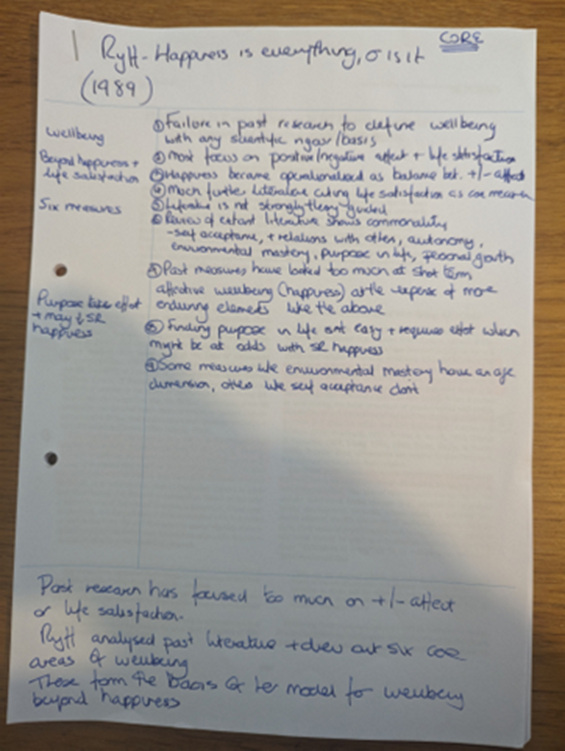 1 Ryff - Happiness is everything, or is it
CORE
(1989)
Wellbeing
Beyond happiness +
life satisfaction
Six measures
Purpose takes effort
+ may ≠ SR
happiness
① Failure in past research to define wellbeing
with any scientific rigour/basis
② most focus on positive/negative affect + life satisfaction
③ Happiness became operationalised as balance bet. +/- affect
④ Much further literature citing life satisfaction as core measure
⑤ Literature is not strongly theory-guided
⑥ Review of extant literature shows commonality
- self acceptance, + relations with others, autonomy,
environmental mastery, purpose in life, personal growth
⑦ Past measures have looked too much at short term
affective wellbeing (happiness) at the expense of more
enduring elements like the above
⑧ Finding purpose in life isnt easy + requires effort which
might be at odds with SR happiness
⑨ Some measures like environmental mastery have an age
dimension, others like self acceptance dont
Past research has focused too much on +/- affect
or life satisfaction.
Ryff analysed past literature + drew out six core
areas of wellbeing
These form the basis of her model for wellbeing
beyond happiness